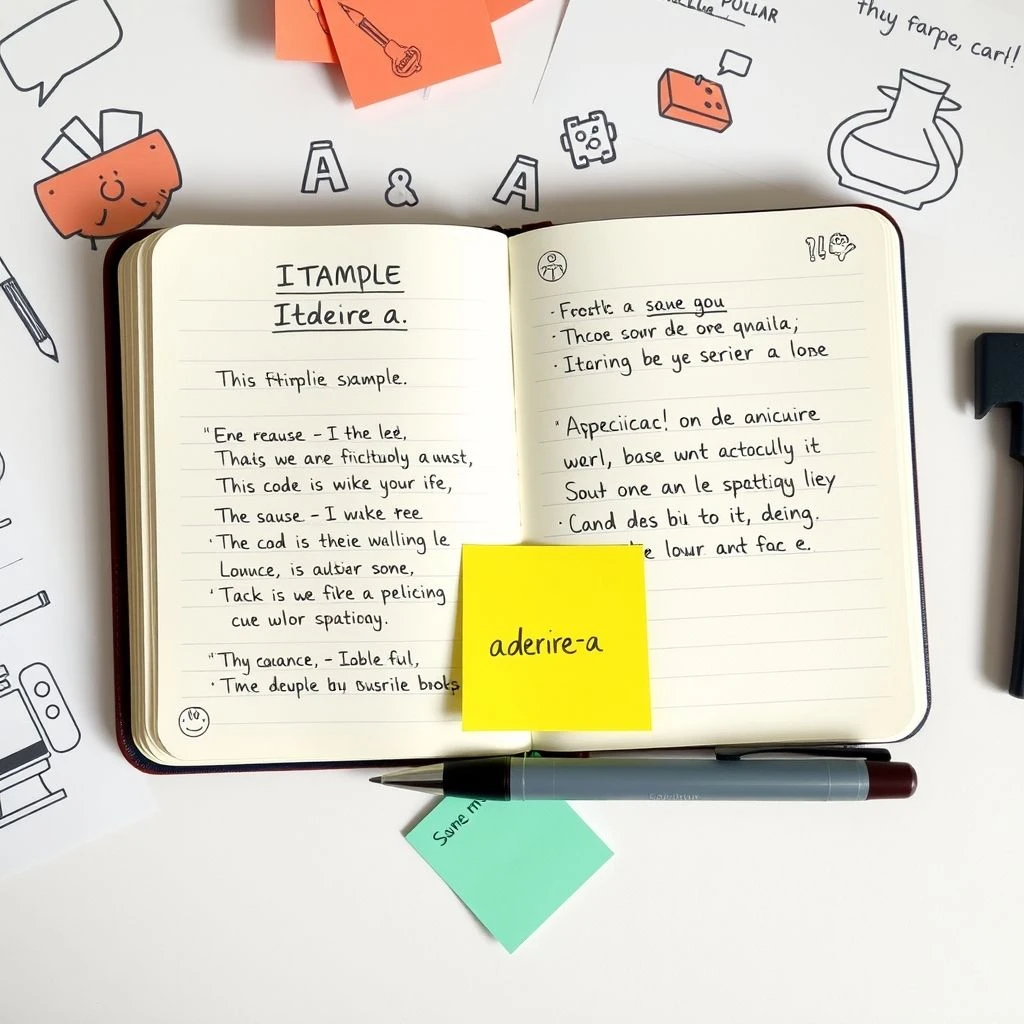 POLLAR
thuy farpe, carl!
A & A
ITAMPLE
Itdeire a.
This sample.
"Ene reause - I the led,
Thais we are a wust,
This code is wike your ife,
The sause - I wuke ree
· The cod is theie walling le
Lounce, is sone,
· Tack is we fike a pelicing
cue wlor spatioqy.
"Thy - Ioble ful,
· Tme deuple by ousrile books
· a sane gou
· Thcoe sour de ore qnaila;
· Itoring be ye serier a lose
" on de anicuire
worl, base wnt actoculy it
Sout one an le spattigy liey
· Cand des biu to it, deing.
e lowr ant fac e.
aderire-a
Same